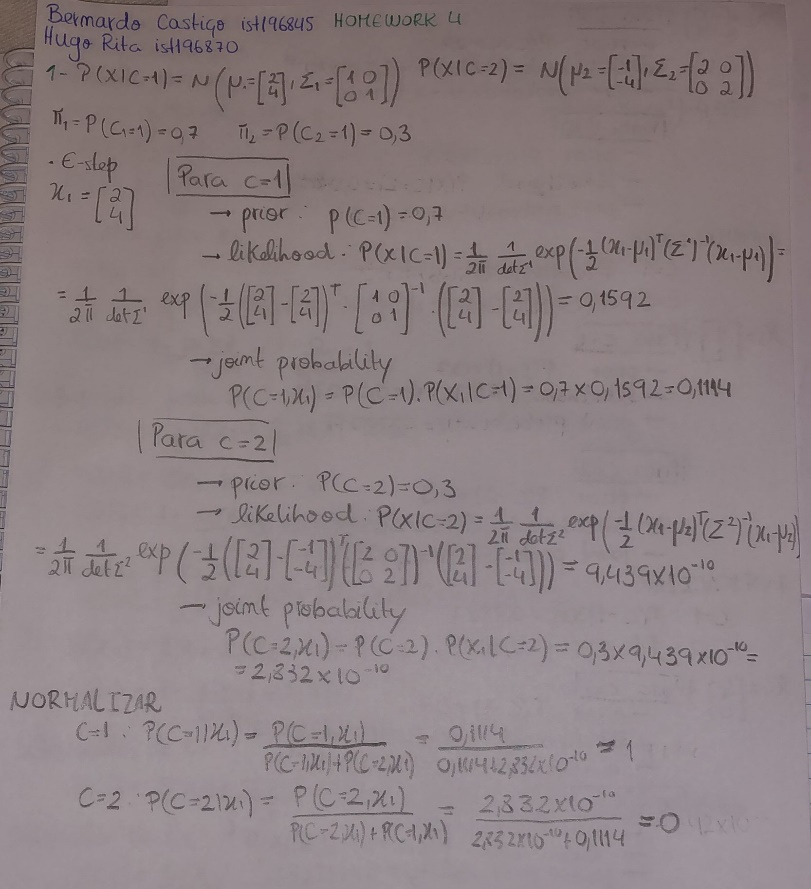 Bernardo Castiço ist196845 HOMEWORK 4
Hugo Rita ist196870
1- P(X|C=1) = N(μ₁=[2 4], Σ₁=[1 0 0 1]) P(X|C=2) = N(μ2=[-1 -4], Σ2=[2 0 0 2])
π₁=P(C₁=1)=0,7 π₂=P(C₂=1)=0,3
· E-step |Para c=1|
x₁=[2 4] → prior: p(C=1)=0,7
→ likelihood: P(X|C=1)= 1/2π 1/detΣ¹ exp(-1/2 (x₁-μ₁)ᵀ(Σ¹)⁻¹(x₁-μ₁))=
= 1/2π 1/detΣ¹ exp(-1/2([2 4]-[2 4])ᵀ·[1 0 0 1]⁻¹·([2 4]-[2 4]))=0,1592
→ joint probability
P(C=1,x₁) = P(C=1).P(X₁|C=1)=0,7×0,1592=0,1114
|Para c=2|
→ prior: P(C=2)=0,3
→ likelihood: P(X|C=2)= 1/2π 1/detΣ² exp(-1/2 (x₁-μ₂)ᵀ(Σ²)⁻¹(x₁-μ₂))
= 1/2π 1/detΣ² exp(-1/2([2 4]-[-1 -4])ᵀ([2 0 0 2])⁻¹([2 4]-[-1 -4])) = 9,439×10⁻¹⁰
→ joint probability
P(C=2,x₁)=P(C=2).P(X₁|C=2)=0,3×9,439×10⁻¹⁰=
=2,832×10⁻¹⁰
NORMALIZAR
C=1: P(C=1|x₁)= P(C=1,x₁)/P(C=1,x₁)+P(C=2,x₁) = 0,1114/0,1114+2,832×10⁻¹⁰ ≈ 1
C=2: P(C=2|x₁)= P(C=2,x₁)/P(C=2,x₁)+P(C=1,x₁) = 2,832×10⁻¹⁰/2,832×10⁻¹⁰+0,1114 ≈0